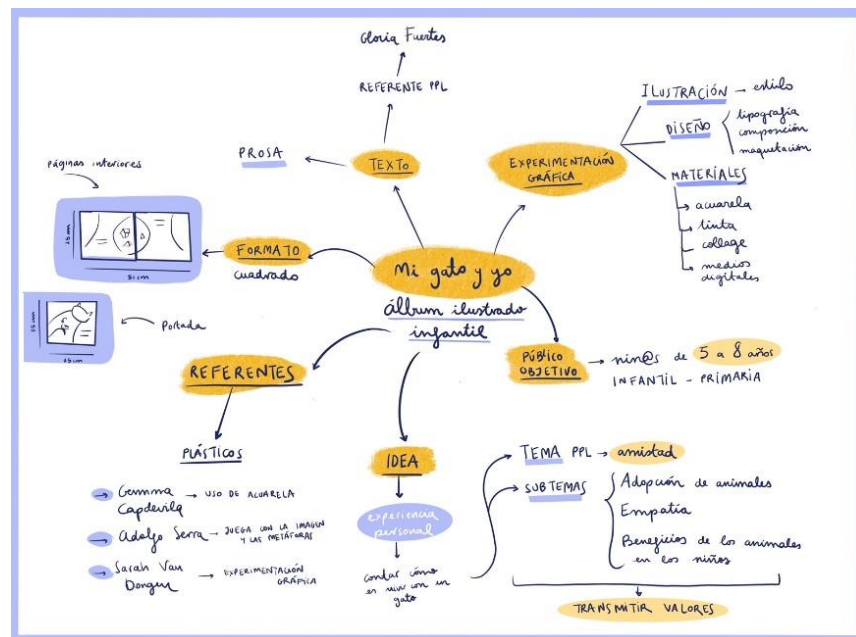 Gloria Fuertes
REFERENTE PPL
PROSA
TEXTO
EXPERIMENTACIÓN
GRÁFICA
ILUSTRACIÓN → estilo
DISEÑO
tipografía
composición
maquetación
MATERIALES
acuarela
tinta
collage
medios
digitales
Páginas interiores
25 cm
51 cm
FORMATO
cuadrado
Portada
25 cm
25 cm
Mi gato y yo
álbum ilustrado
infantil
PÚBLICO
OBJETIVO
niñ@s de 5 a 8 años
INFANTIL - PRIMARIA
REFERENTES
PLÁSTICOS
Gemma
Capdevila → USO DE ACUARELA
Adolfo Serra → JUEGA CON LA IMAGEN
Y LAS METÁFORAS
Sarah Van
Dongen → EXPERIMENTACIÓN
GRÁFICA
IDEA
experiencia
personal
contar cómo
es vivir con un
gato
TEMA PPL → amistad
SUBTEMAS
Adopción de animales
Empatía
Beneficios de los animales
en los niños
TRANSMITIR VALORES